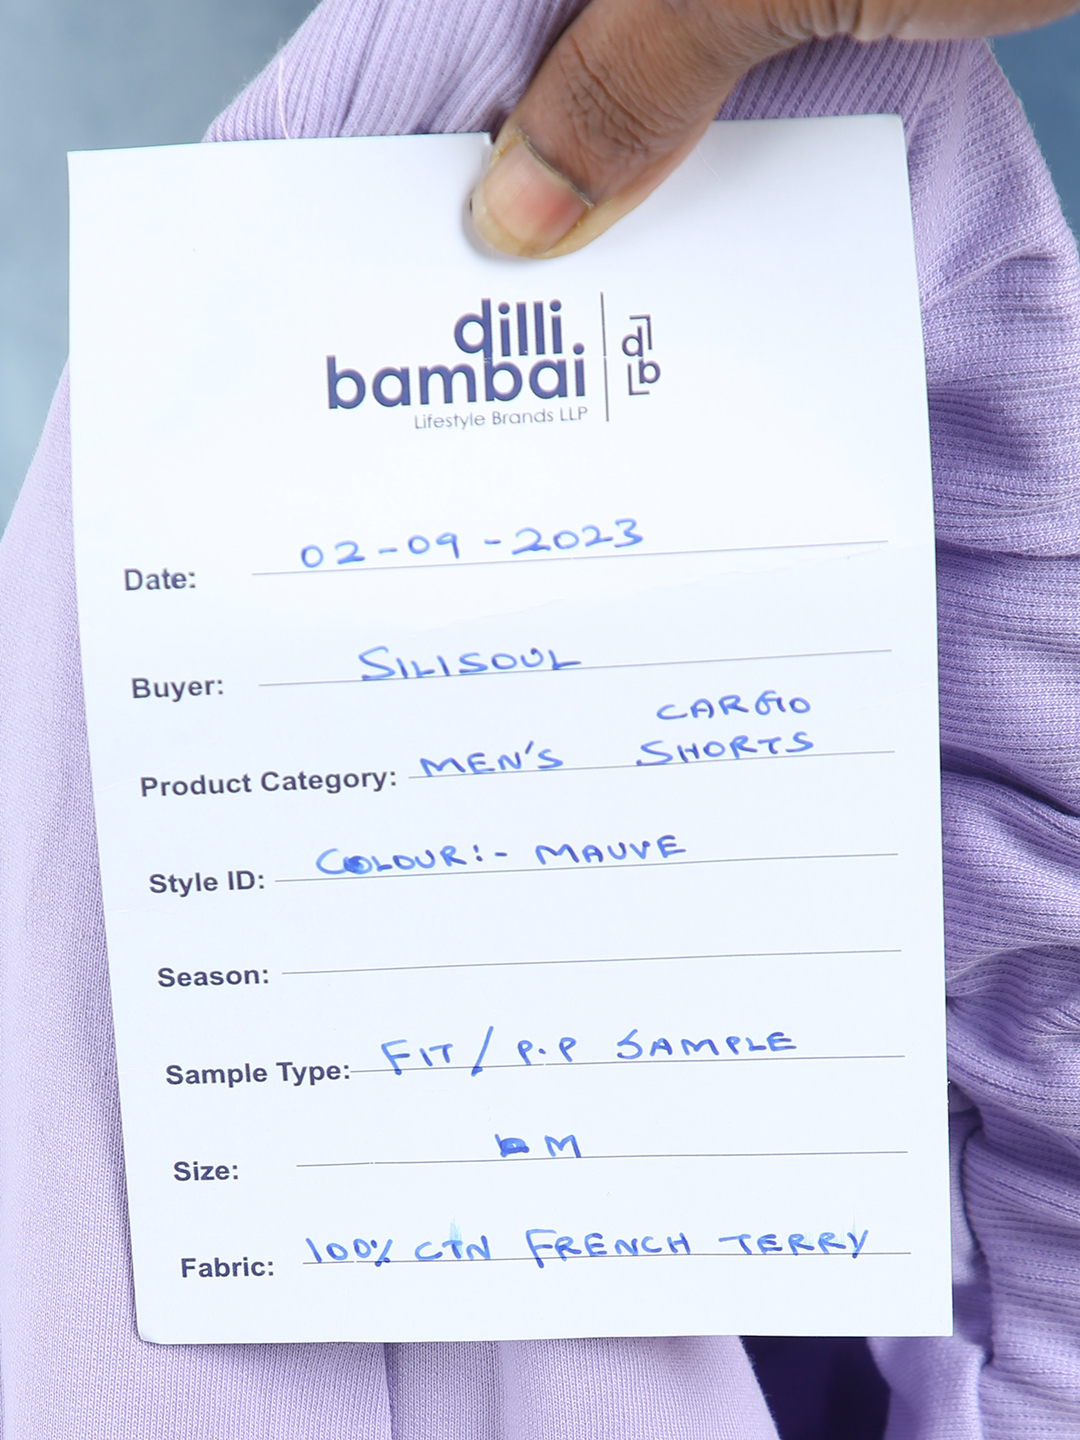 dilli
bambai
Lifestyle Brands LLP
d
b
Date: 02-09-2023
Buyer: SILISOUL
Product Category: MEN'S CARGO SHORTS
Style ID: COLOUR:- MAUVE
Season:
Sample Type: FIT/P.P SAMPLE
Size: M
Fabric: 100% CTN FRENCH TERRY